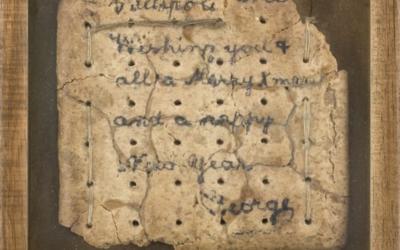 Gallipoli
Wishing you &
all a Merry Xmas
and a happy
New Year
George